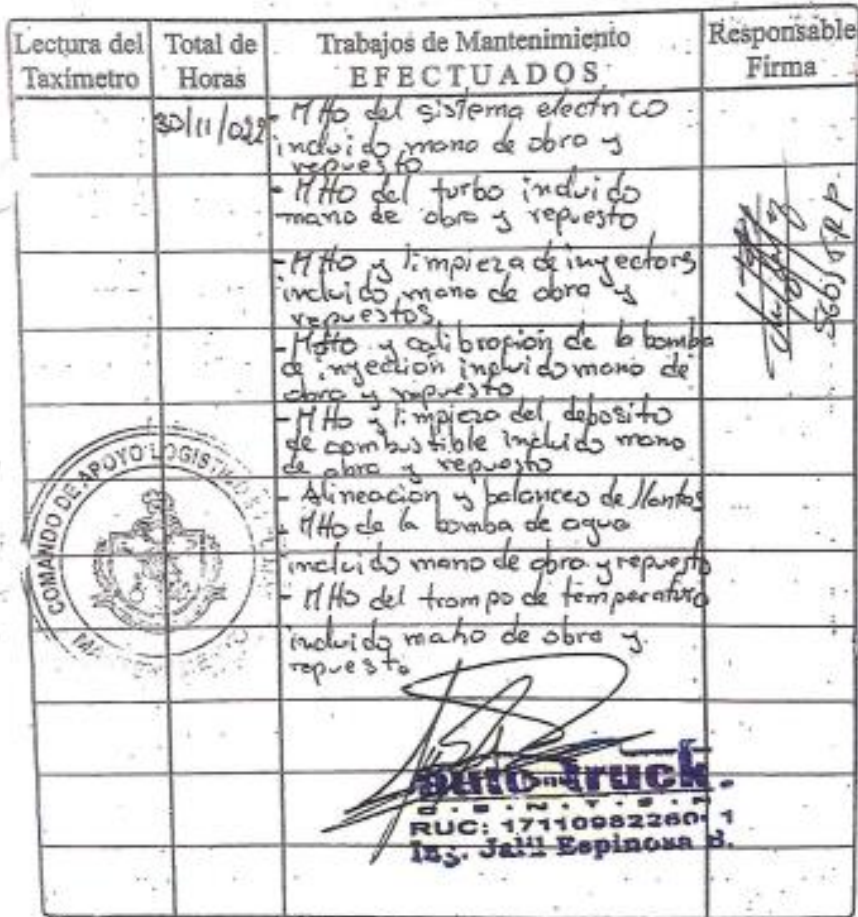 Lectura del Taxímetro
Total de Horas
Trabajos de Mantenimiento EFECTUADOS
Responsable Firma
30/11/022
- Mtto del sistema electrico
incluido mano de obra y
repuesto
- Mtto del turbo incluido
mano de obra y repuesto
- Mtto y limpieza de inyectors
incluido mano de obra y
repuestos
- Mtto y calibración de la bomba
de inyección incluido mano de
obra y repuesto
- Mtto y limpieza del deposito
de combustible incluido mano
de obra y repuesto
- Alineación y balanceo de llantas
- Mtto de la bomba de agua
incluido mano de obra y repuesto
- Mtto del trompo de temperatura
incluido mano de obra y
repuesto
COMANDO DE APOYO LOGISTICO
auto truck
C.E.N.T.E.R
RUC: 1711098226001
Ing. Jalil Espinosa B.
SGOS